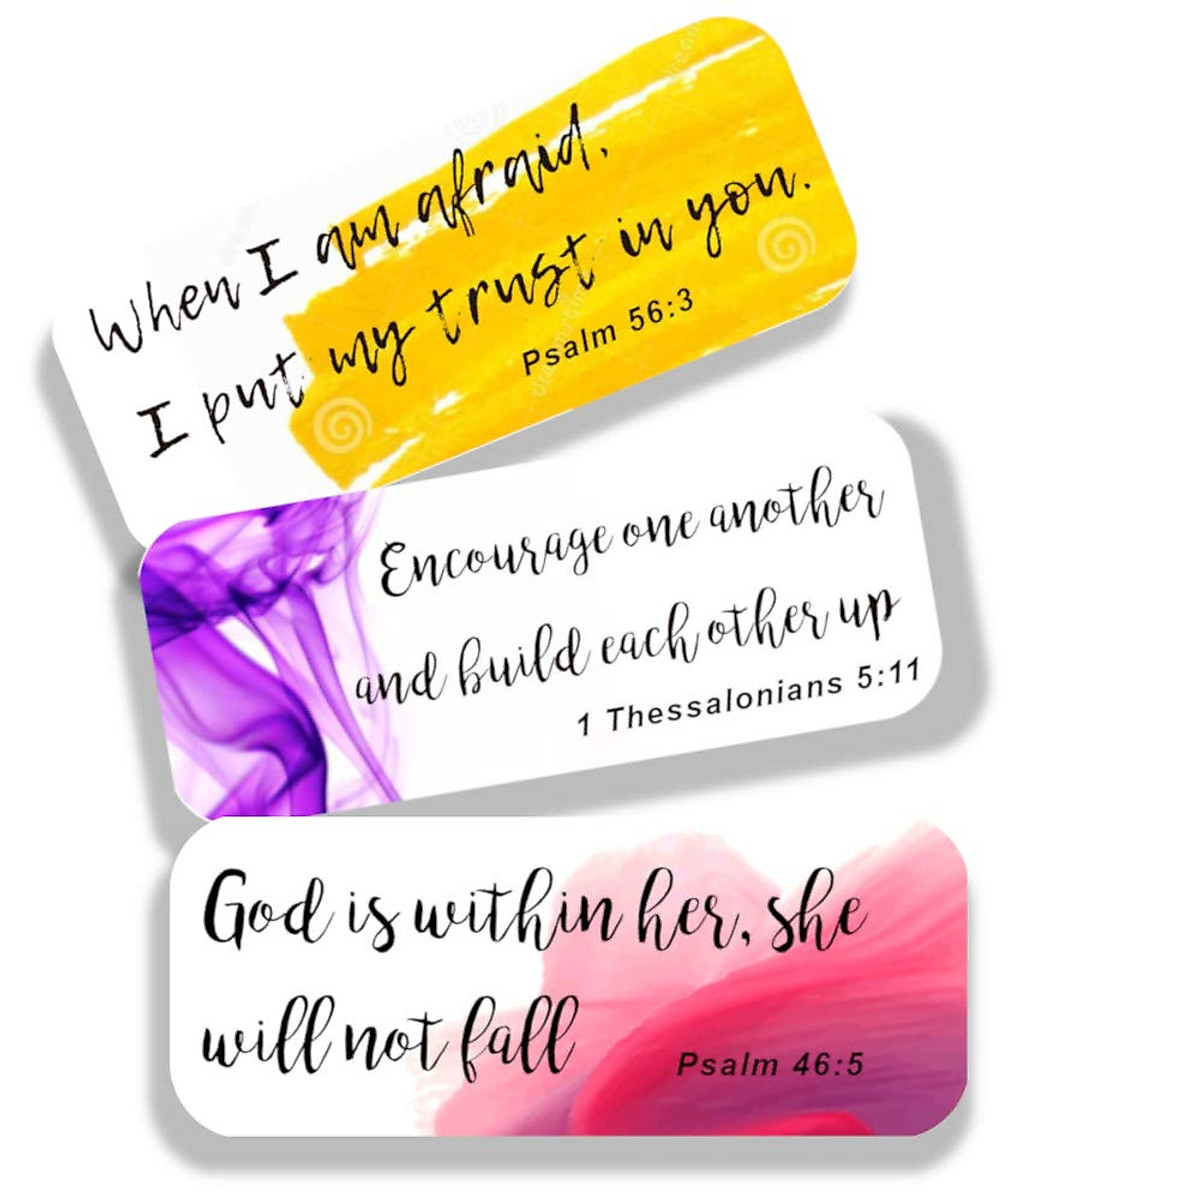 When I am afraid,
I put my trust in you.
Psalm 56:3
Encourage one another
and build each other up
1 Thessalonians 5:11
God is within her, she
will not fall
Psalm 46:5